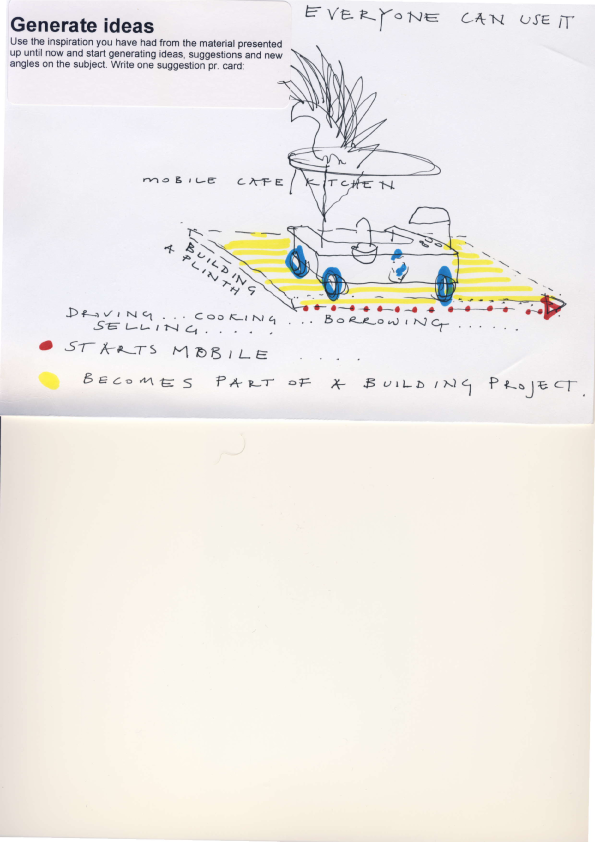 Generate ideas
Use the inspiration you have had from the material presented
up until now and start generating ideas, suggestions and new
angles on the subject. Write one suggestion pr. card:
EVERYONE CAN USE IT
MOBILE CAFE/KITCHEN
BUILDING
A PLINTH
DRIVING... COOKING... BORROWING......
SELLING.....
STARTS MOBILE ....
BECOMES PART OF A BUILDING PROJECT.